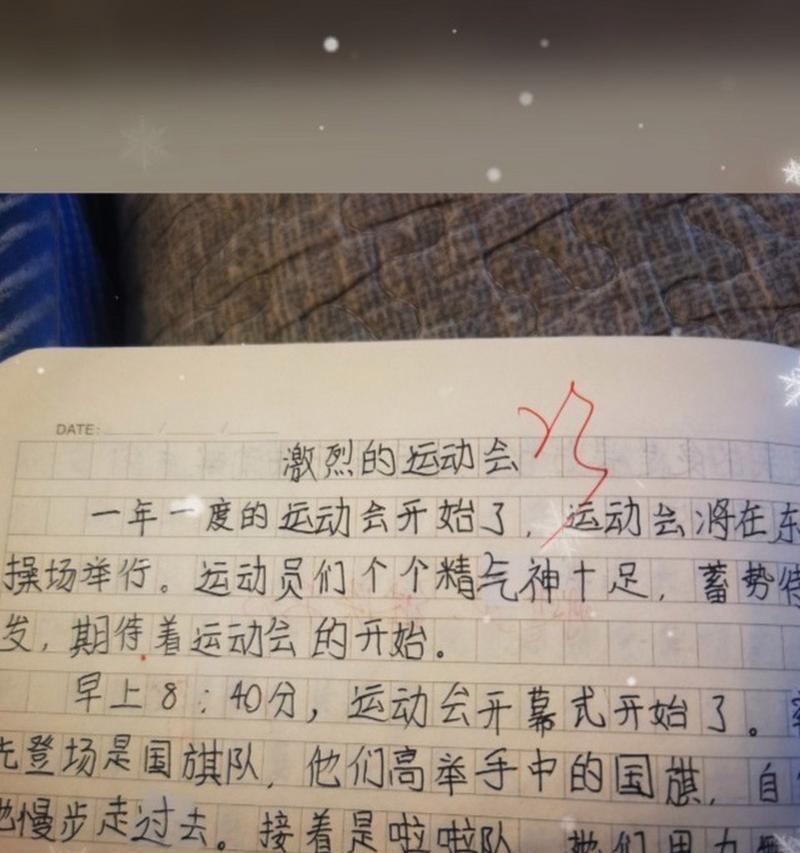 DATE: / /
激烈的运动会
一年一度的运动会开始了，运动会将在东
操场举行。运动员们个个精气神十足，蓄势待
发，期待着运动会的开始。
早上8:40分，运动会开幕式开始了。率
先登场是国旗队，他们高举手中的国旗，自
地慢步走过去。接着是啦啦队，她们用力